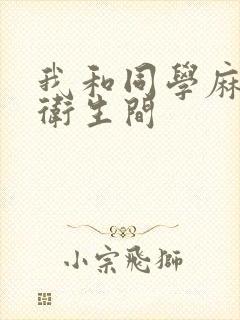 我和同學麻
衛生間
小宗飛獅